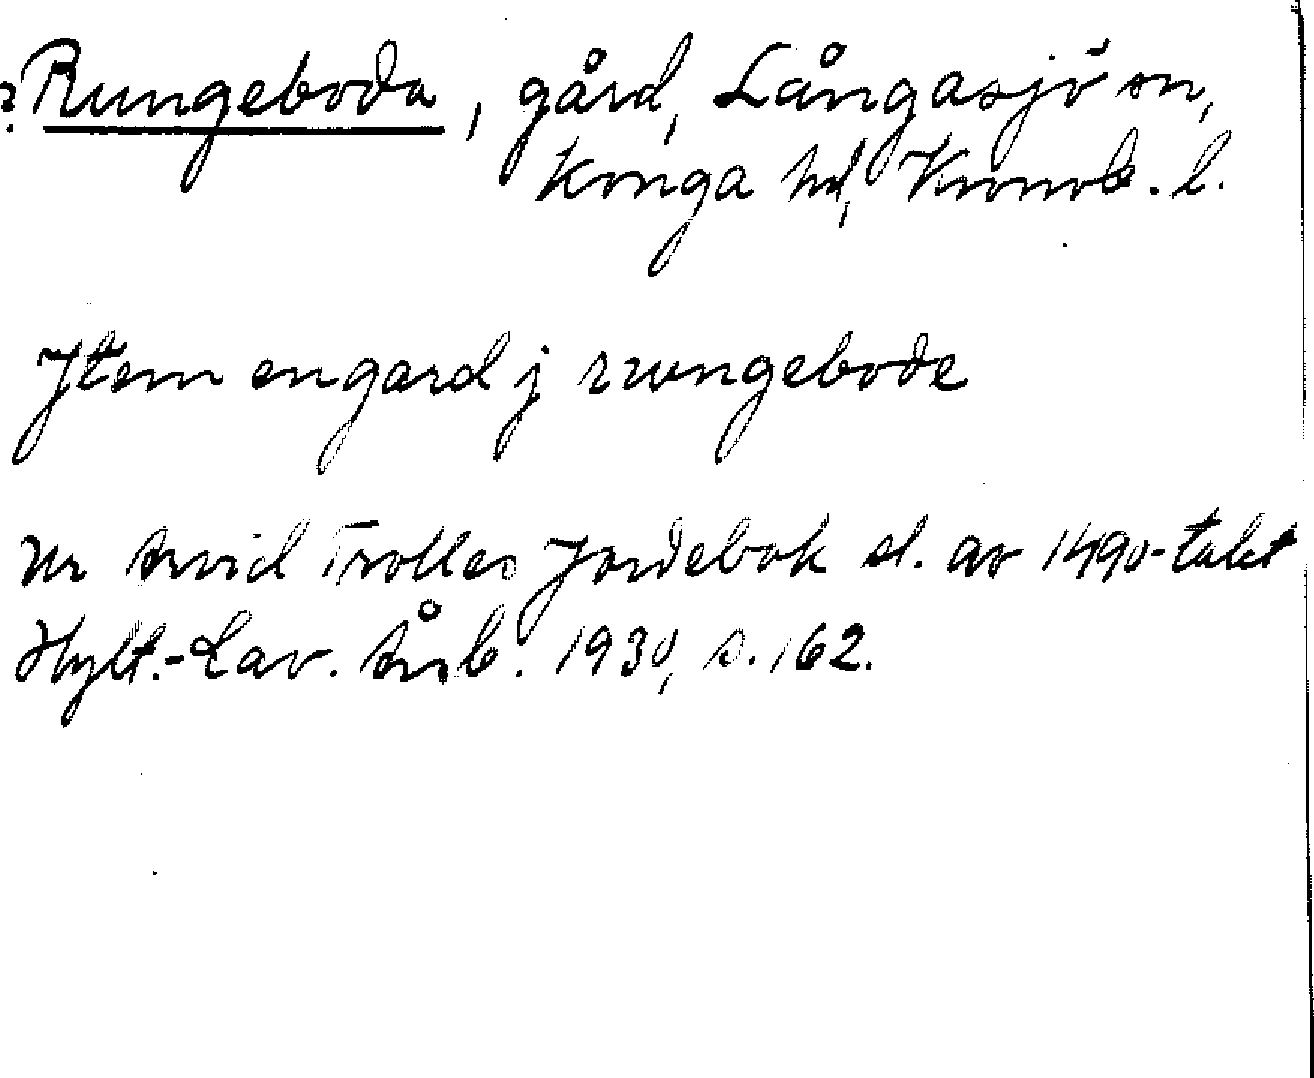 ? Rungeboda, gård, Långasjö sn,
Konga hd, Kronob. l.
Jtem en gard j rwngebode
Ur Arvid Trolles Jordebok sl. av 1490-talet
Hylt.-Cav. Årsb. 1930, s. 162.